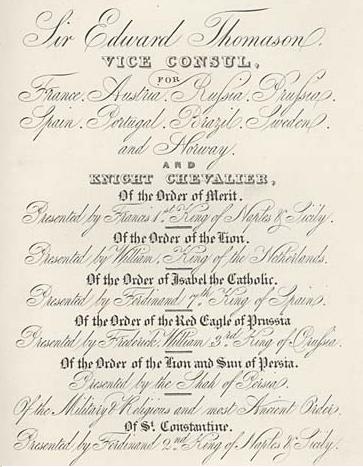 Sir Edward Thomason.
VICE CONSUL,
FOR
France, Austria, Russia, Prussia,
Spain, Portugal, Brazil, Sweden,
and Norway.
AND
KNIGHT CHEVALIER,
Of the Order of Merit.
Presented by Francis 1st King of Naples & Sicily.
Of the Order of the Lion.
Presented by William, King of the Netherlands.
Of the Order of Isabel the Catholic.
Presented by Ferdinand 7th King of Spain.
Of the Order of the Red Eagle of Prussia
Presented by Frederick William 3rd King of Prussia.
Of the Order of the Lion and Sun of Persia.
Presented by the Shah of Persia.
Of the Military & Religious and most Ancient Order
Of St. Constantine.
Presented by Ferdinand 2nd King of Naples & Sicily.